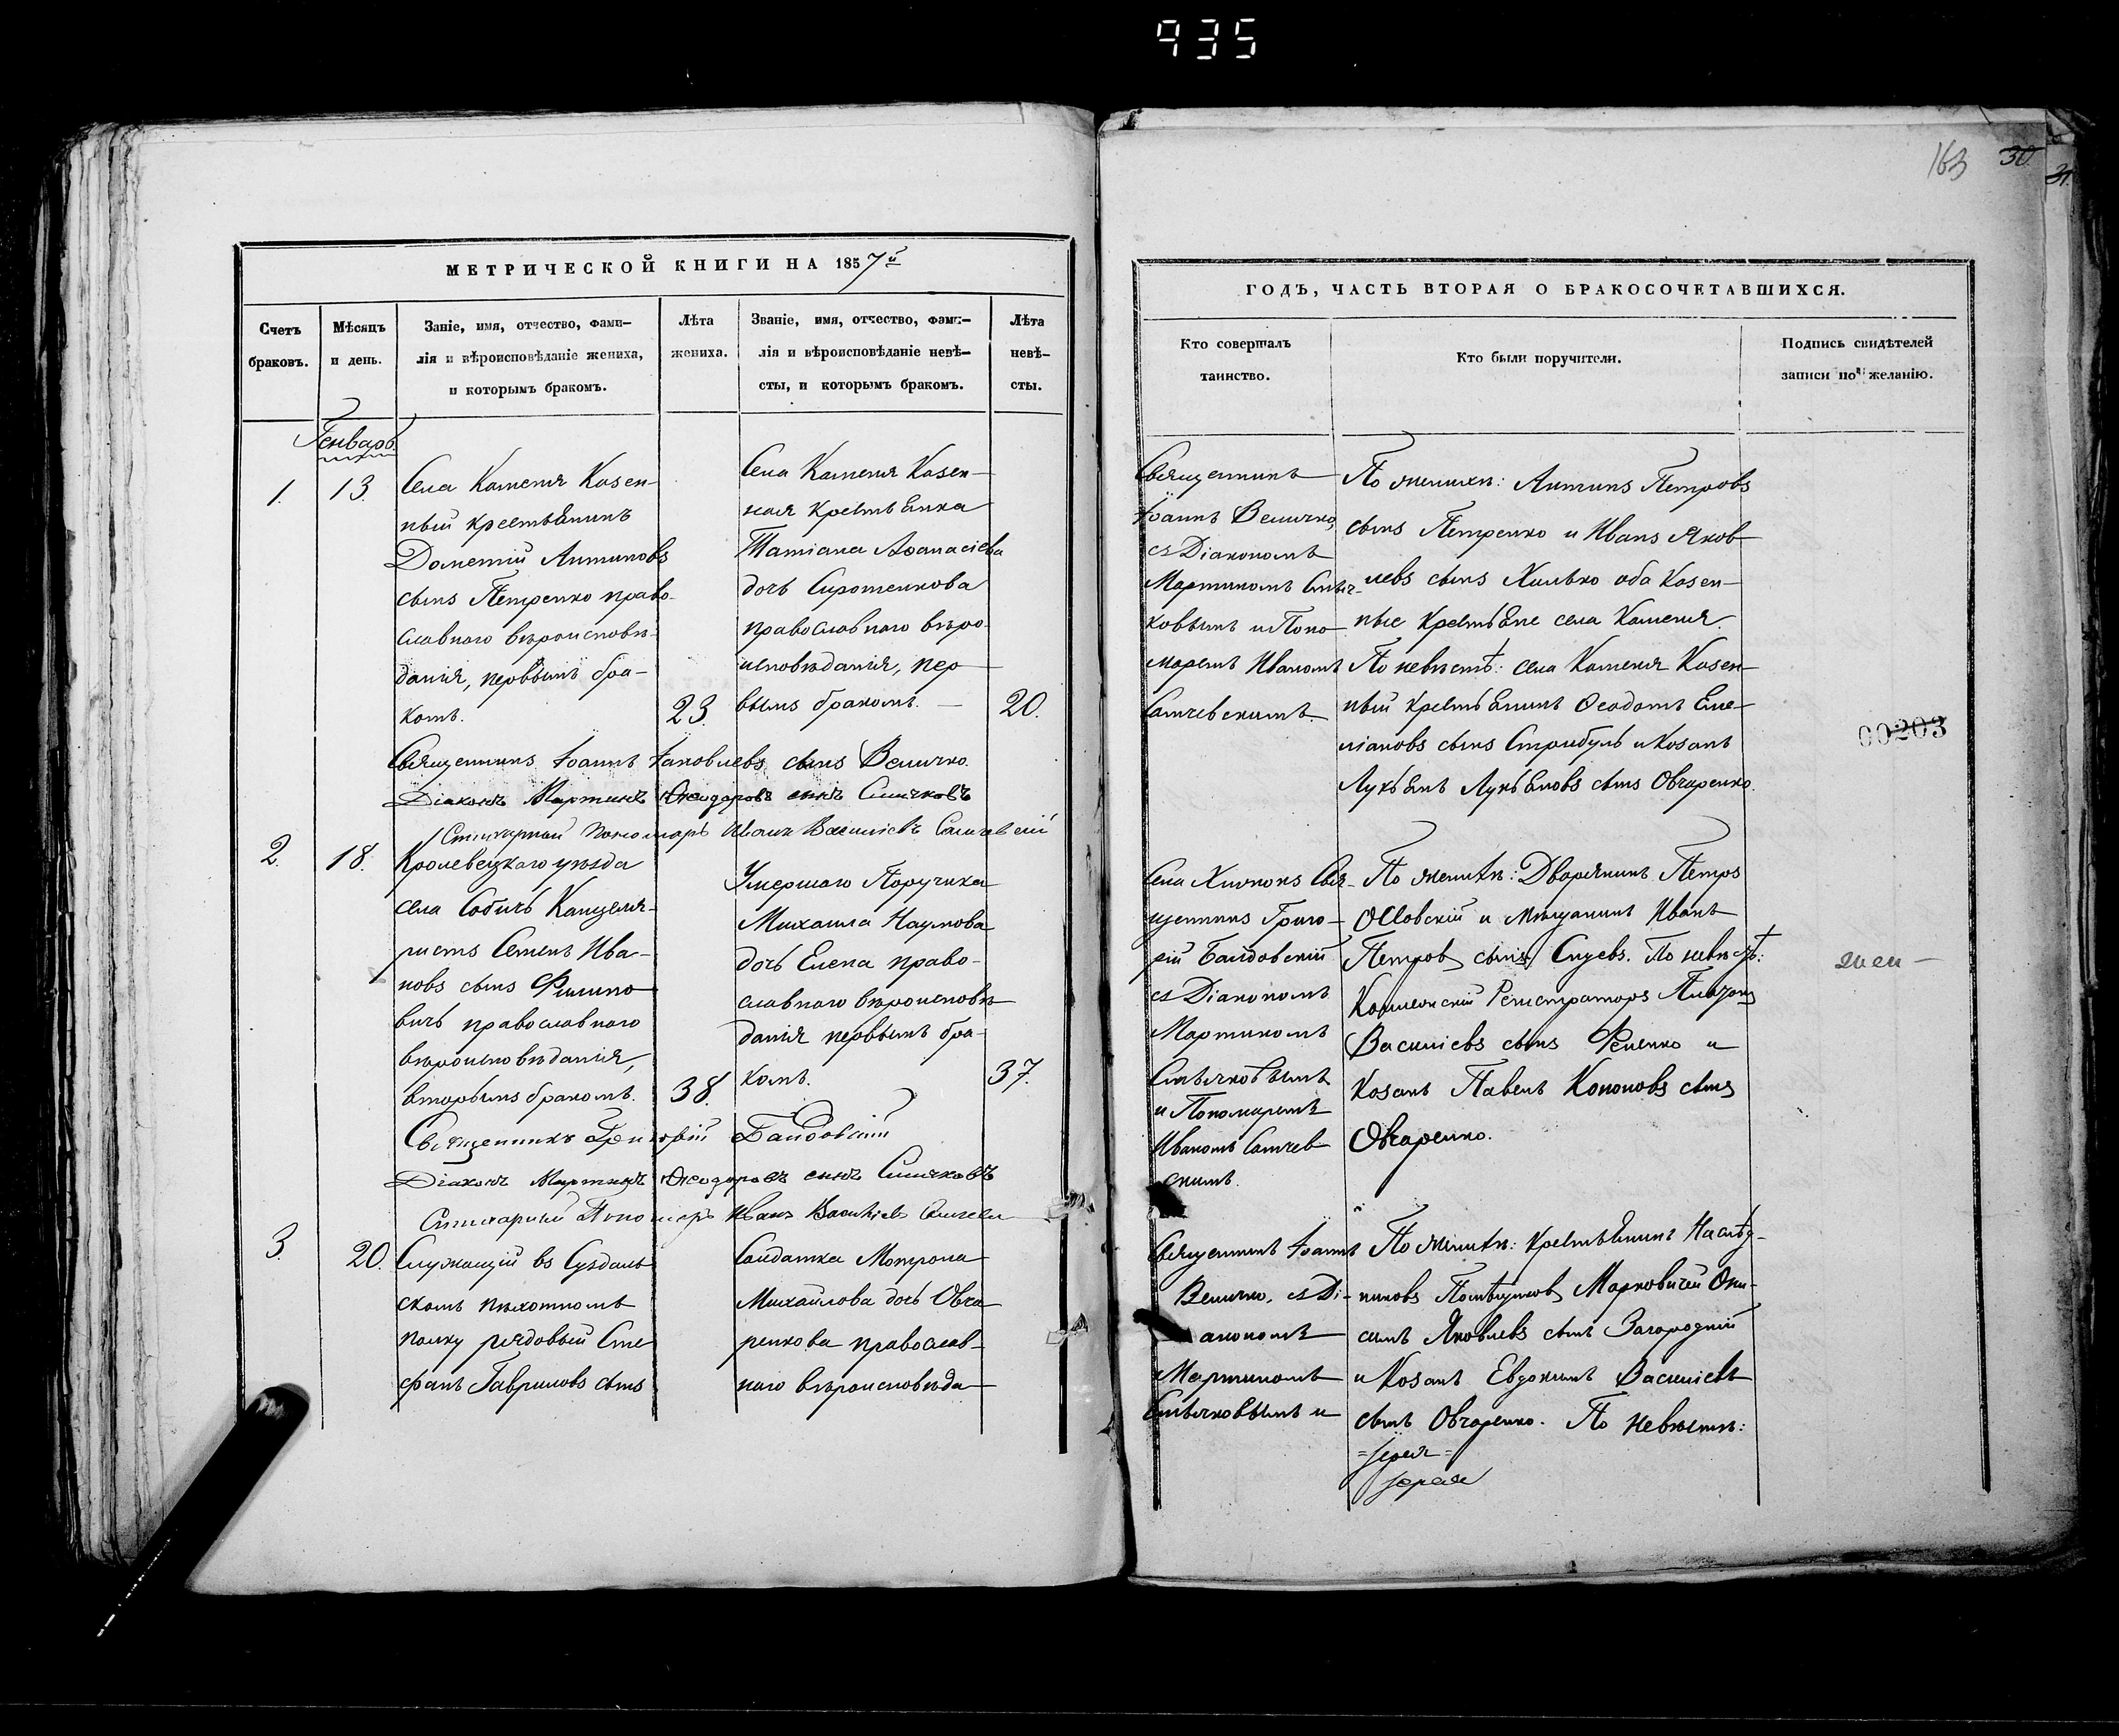 935
163 30. 31.
МЕТРИЧЕСКОЙ КНИГИ НА 1857й
Счетъ браковъ.
Мѣсяцъ и день.
Заніе, имя, отчество, фами-
лія и вѣроисповѣданіе жениха,
и которымъ бракомъ.
Лѣта
жениха.
Званіе, имя, отчество, фами-
лія и вѣроисповѣданіе невѣ-
сты, и которымъ бракомъ.
Лѣта
невѣ-
сты.
Генварь.
1. 13.
Села Каменя Козен-
ный крестьянинъ
Дометій Антиповъ
сынъ Петренко право-
славнаго вѣроисповѣ-
данія, первымъ бра-
комъ.
23.
Села Каменя Козен-
ная крестьянка
Татіана Аѳанасіева
дочь Сиротенкова
православнаго вѣро-
исповѣданія, пер-
вымъ бракомъ. —
20.
Священникъ Іоаннъ Іаковлевъ сынъ Величко.
Діаконъ Мартинъ Ѳеодоровъ сынъ Смычковъ
Стихарный Пономарь Иванъ Василіевъ
2. 18.
Кролевецкаго уѣзда
села Собичъ Канцеля-
ристъ Семенъ Ива-
новъ сынъ Филипо-
вичъ православнаго
вѣроисповѣданія,
вторымъ бракомъ.
38.
Умершаго Поручика
Михаила Наумова
дочь Елена право-
славнаго вѣроисповѣ-
данія первымъ бра-
комъ.
37.
Священникъ Григорій Байдовскій
Діаконъ Мартинъ Ѳеодоровъ сынъ Смычковъ
Стихарный Пономарь Иванъ Василіевъ
3. 20.
Служащій въ Суздаль-
скомъ пѣхотномъ
полку рядовый Сте-
фанъ Гавриловъ сынъ
Солдатка Матрона
Михайлова дочь Овча-
ренкова православ-
наго вѣроисповѣда-
ГОДЪ, ЧАСТЬ ВТОРАЯ О БРАКОСОЧЕТАВШИХСЯ.
Кто совершалъ
таинство.
Кто были поручители.
Подпись свидѣтелей
записи по желанію.
Священникъ
Іоаннъ Величко,
съ Діакономъ
Мартиномъ Смыч-
ковымъ и Поно-
маремъ Иваномъ
По женихѣ: Антипъ Петровъ
сынъ Петренко и Иванъ Яков-
левъ сынъ Хилько оба Козен-
ные крестьяне села Каменя.
По невѣстѣ: села Каменя Козен-
ный крестьянинъ Ѳеодотъ Еме-
ліановъ сынъ Стрибуль и Козакъ
Лукьянъ Лукьяновъ сынъ Овчаренко.
00203
Села Свя-
щенникъ Григо-
рій Байдовскій
съ Діакономъ
Мартиномъ
Смычковымъ
и Пономаремъ
Иваномъ
скимъ.
По женихѣ: Дворянинъ Петръ
и мѣщанинъ Иванъ
Петровъ сынъ. По невѣстѣ:
Коллежскій Регистраторъ
Василіевъ сынъ и
Козакъ Павелъ Кононовъ сынъ
Овчаренко.
Священникъ Іоаннъ
Величко, съ Ді-
акономъ
Мартиномъ
Смычковымъ и
По женихѣ: крестьянинъ Наслѣд-
никовъ Помѣщиковъ Марковичей Они-
симъ Яковлевъ сынъ Загородній
и Козакъ Евдокимъ Василіевъ
сынъ Овчаренко. По невѣстѣ: